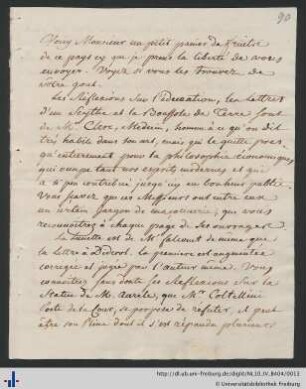 90
Voicy Monsieur un petit panier de fruits
de ce pays cy que je prens la liberté de vous
envoyer. Voyez si vous les trouvez de
vôtre gout.
Les Réflexions sur l'éducation, les lettres
d'un Scythe et la Boussole de Terre sont
de Mr. Clerc, Médecin, homme à ce qu'on dit
très habile dans son art, mais qu'il quitte presq'
qu'entierement pour la philosophie économique,
qui occupe tant nos esprits modernes et qui
a si peu contribué jusqu'icy au bonheur public.
Vous savez que ces Messieurs ont entre eux
un certain jargon de maçonnerie, que vous
reconnoitrez à chaque page de ses ouvrages.
La Gazette est de Mr falconet de meme que
la lettre à Diderot. la premiere est augmentée
corrigée et par l'auteur meme. Vous
connoitrez sans doute ses Reflexions sur la
Statue de M. Aurele, que Mr Coltellini
Poete de la Cour, se propose de réfuter, il peut
être son Pline dont il s'est répandu plusieurs
http://dl.ub.uni-freiburg.de/diglit/